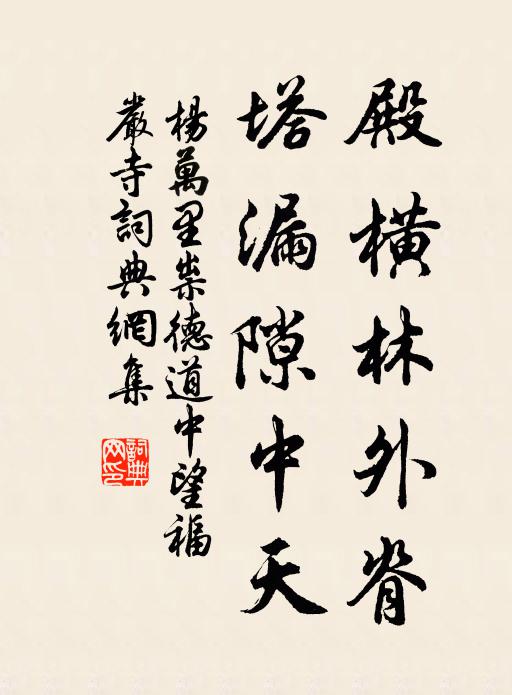 殿橫林外脊
塔漏隙中天
楊萬里崇德道中望福
嚴寺詞典網集
詞典網印